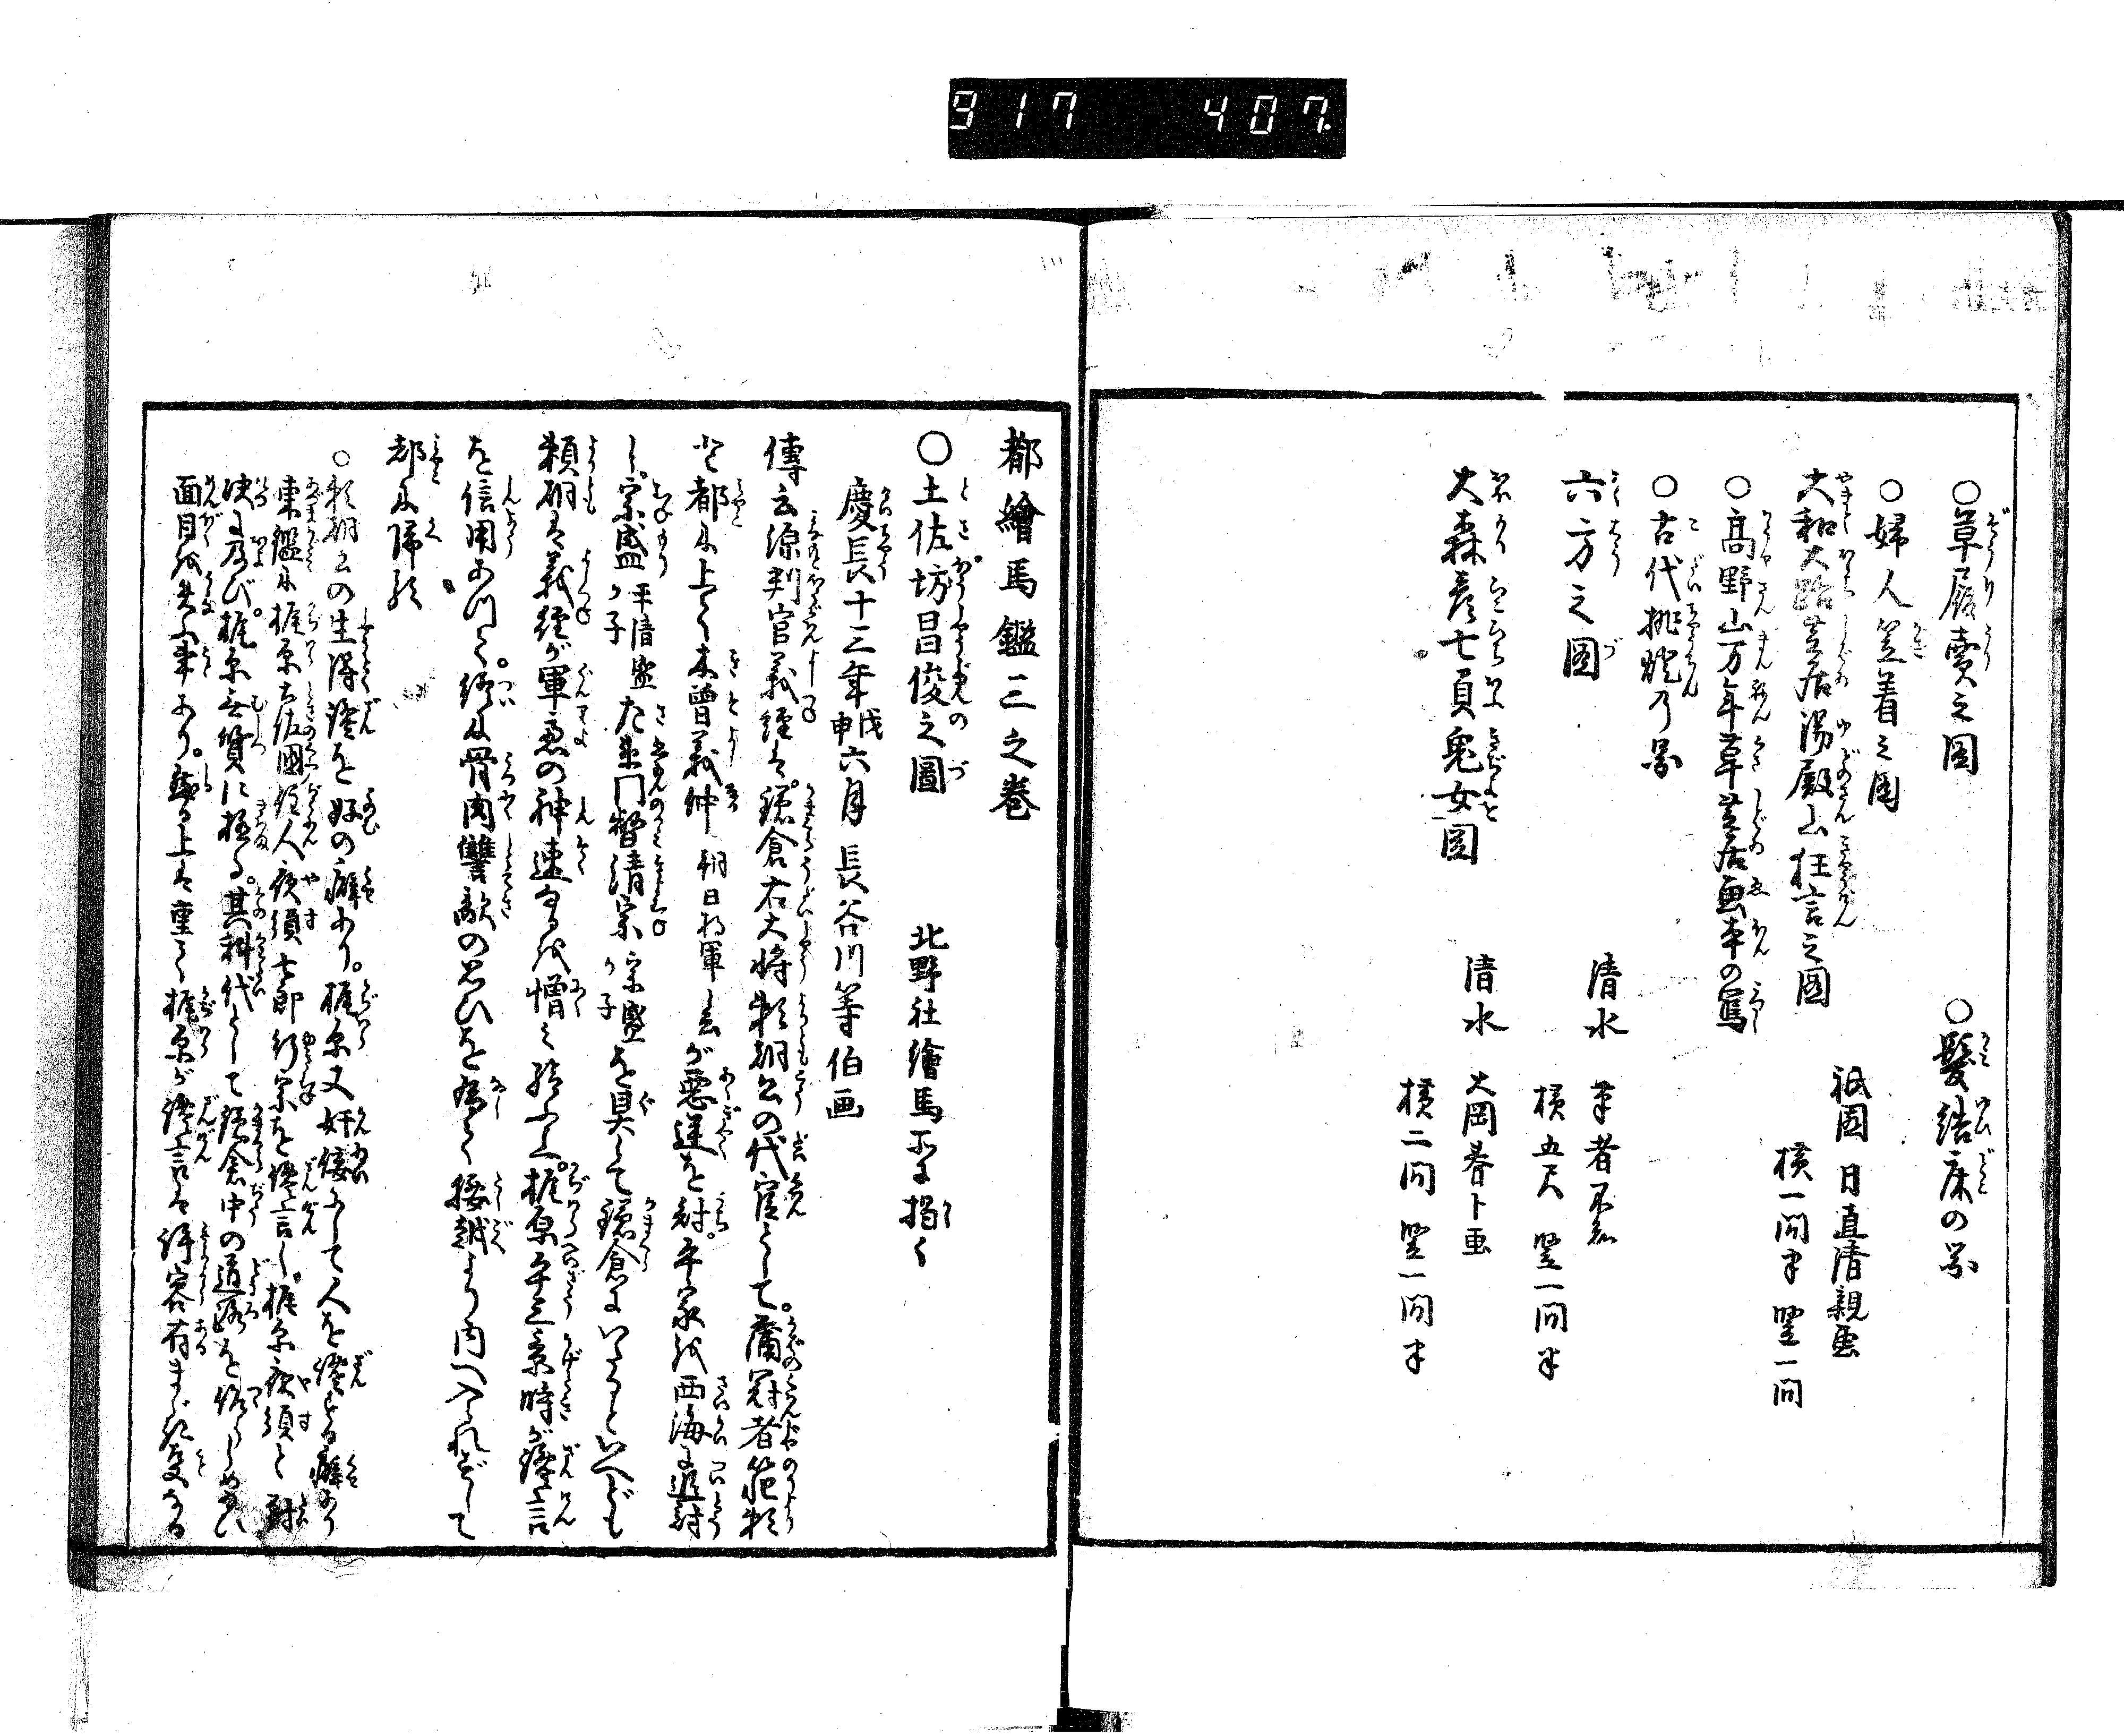 917 407.
○草履賣之図 ○髪結床の図
○婦人笠着之図
大和大路芝居湯殿山狂言之図 祇園 日直清親画
横一間半 竪一間
○高野山万年草芝居画本の写
○古代挑灯乃図
六方之図 清水 筆者不知
横五尺 竪一間半
大森彦七負鬼女図 清水 大岡春卜画
横二間 竪一間半
都繪馬鑑三之巻
○土佐坊昌俊之圖 北野社繪馬所に掲く
慶長十三年戊申六月 長谷川等伯画
傳云源判官義經は。鎌倉右大将頼朝公の代官として。蒲冠者範頼
と都に上り木曽義仲 朝日将軍 が悪逆を討。平家を西海に追討
し。宗盛 平清盛ヶ子 左衛門督清宗 宗盛ヶ子 を具して鎌倉にいたるといへども
頼朝は義經が軍慮の神速なるを憎み給ふ上。梶原平三景時が讒言
を信用あつて。終に骨肉讐敵の思ひを為て腰越より内へ入られずして
都に帰る
○頼朝公の生得讒を好の癖あり。梶原又奸佞にして人を讒する癖あり
東鑑に梶原土佐國住人夜須七郎行宗を讒言し。梶原夜須と對
決に及び。梶原無實に極る。其科代として鎌倉中の道路を作らしめ給ひ
面目を失ふ事あり。然る上は重て梶原が讒言は許容有まじに更なる